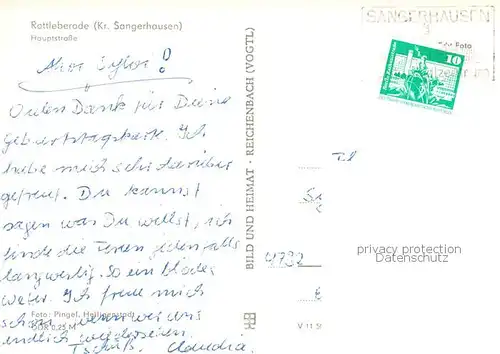 Rottleberode (Kr. Sangerhausen)
Hauptstraße
SANGERHAUSEN
Foto
10
!
Vielen Dank für Deine
Geburtstagskarte. Ich
habe mich sehr darüber
gefreut. Du kannst
sagen was Du willst, ich
finde die Ferien jedenfalls
langweilig. So ein blödes
Wetter. Ich freue mich
schon, wenn wir uns
endlich wiedersehen.
Tschüß, Claudia.
Foto: Pingel, Heiligenstadt
DDR 0,25 M
BILD UND HEIMAT · REICHENBACH (VOGTL)
V 11 5
4732
privacy protection
Datenschutz